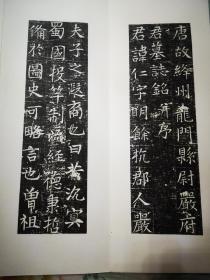 唐故絳州龍門縣尉嚴府
君墓誌銘并序
君諱仁字明餘杭郡人嚴
夫子之後裔也曰若沉冥
蜀國投竿制灘經德秉哲
備於圖史可略言也曾祖